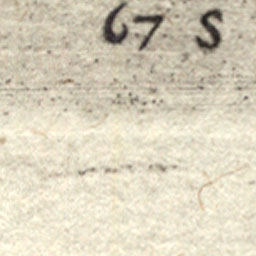 67 S